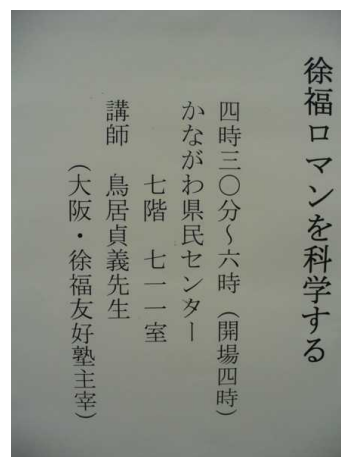 徐福ロマンを科学する
四時三〇分～六時（開場四時）
かながわ県民センター
七階　七一一室
講師　鳥居貞義先生
（大阪・徐福友好塾主宰）